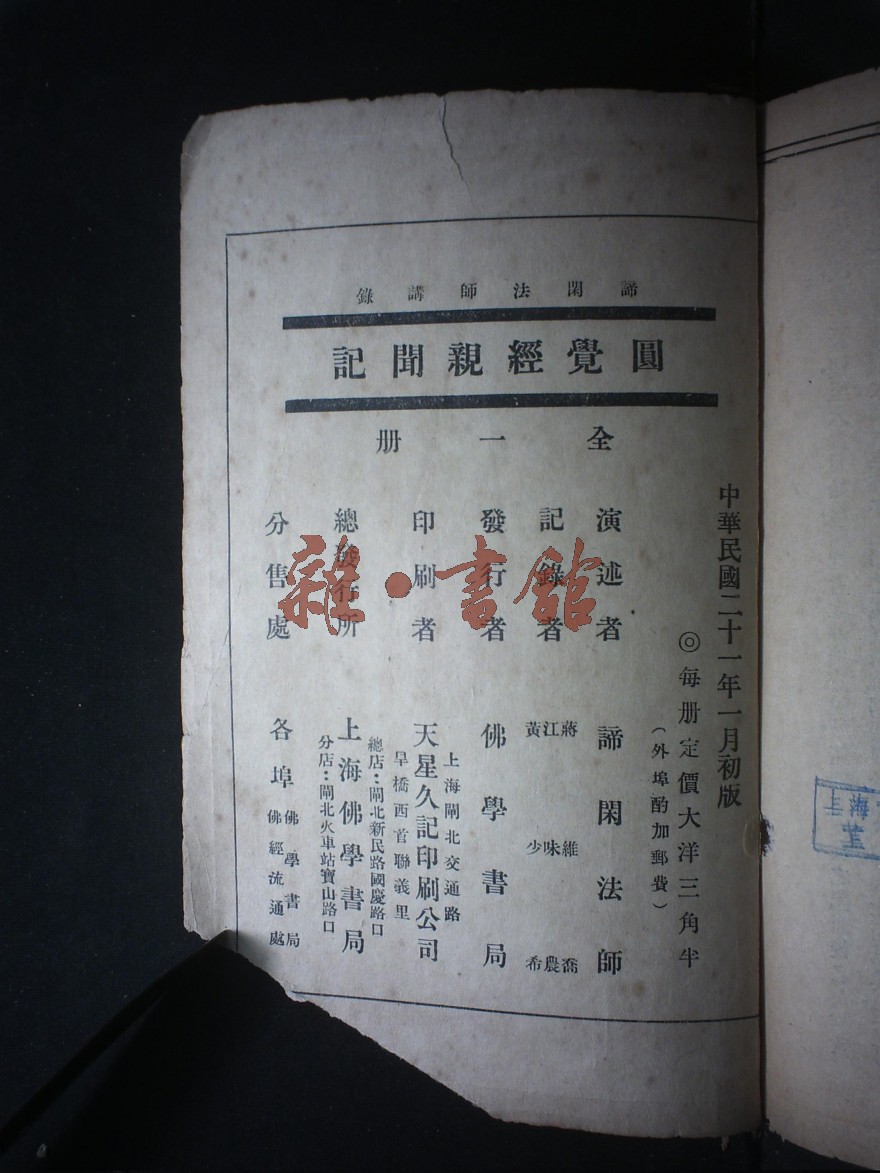 中華民國二十一年一月初版
◎每册定價大洋三角半
(外埠酌加郵費)
諦閑法師講錄
圓覺經親聞記
全一册
演述者 諦閑法師
記錄者 蔣維喬 江味農 黃少希
發行者 佛學書局
印刷者 天星久記印刷公司
上海閘北交通路
旱橋西首聯義里
總發行所 上海佛學書局
總店：閘北新民路國慶路口
分店：閘北火車站寶山路口
分售處 各埠 佛學書局 佛經流通處
雜·書館
上海